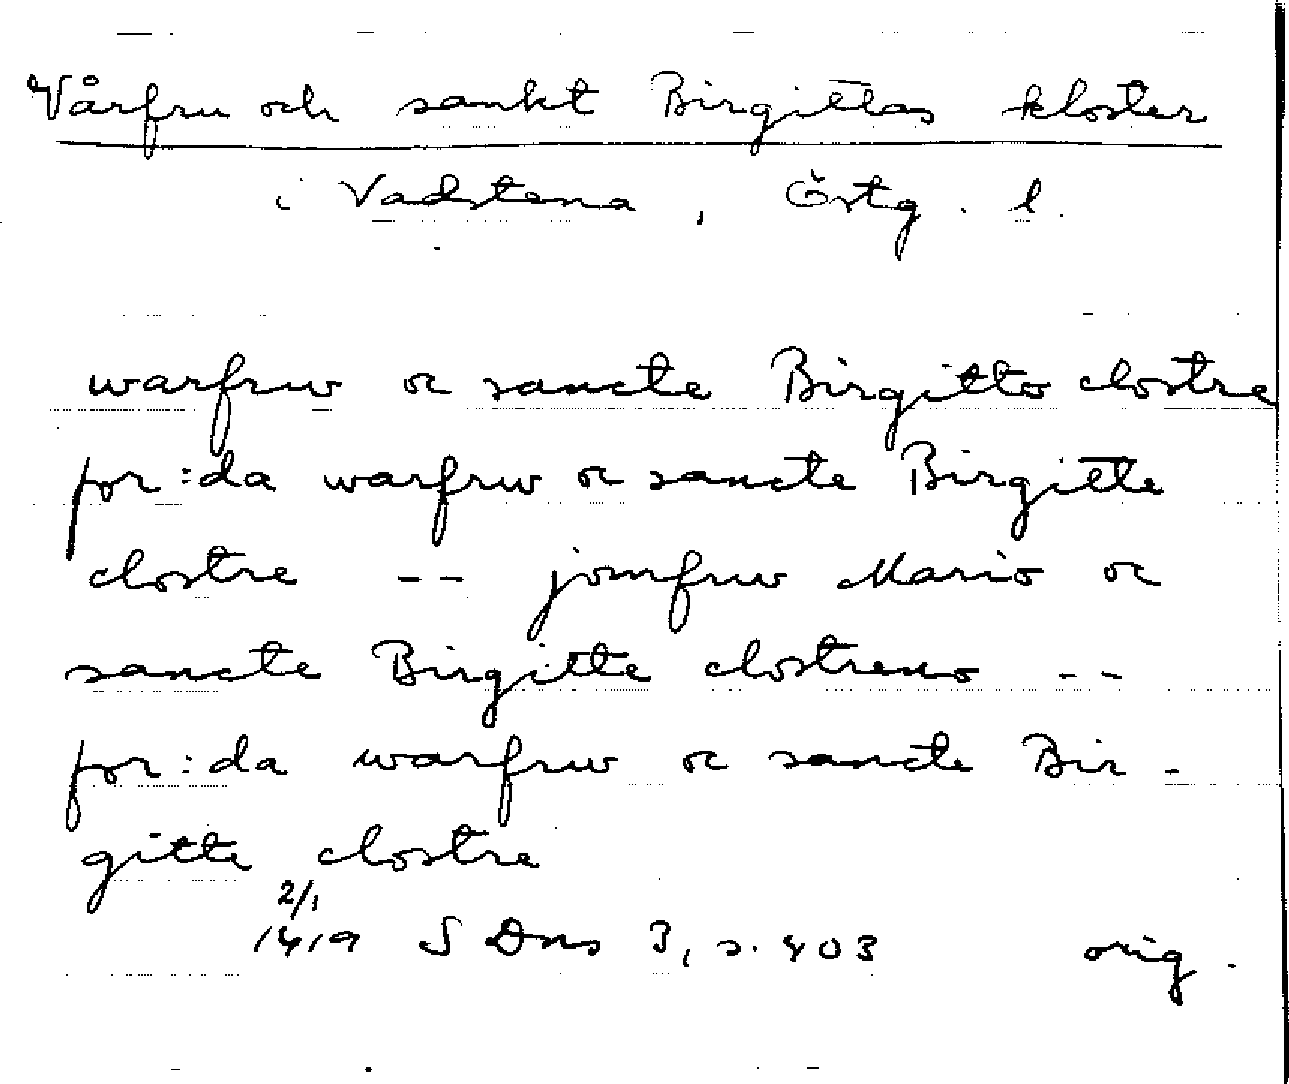 Vårfru och sankt Birgittas kloster
i Vadstena, Östg. l.
warfruw oc sancte Birgitto clostre
for:da warfrw oc sancte Birgitte
clostre -- jomfruw Mario oc
sancte Birgitte clostreno --
for:da warfruw oc sancte Bir-
gitte clostre
2/1
1419 S Dns 3, s. 403 orig.